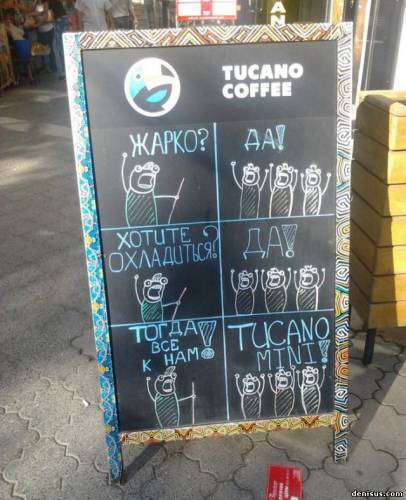 TUCANO
COFFEE
ЖАРКО?
ДА!
ХОТИТЕ
ОХЛАДИТЬСЯ?
ДА!
ТОГДА
ВСЕ
К НАМ!
TUCANO
MINI!
denisus.com